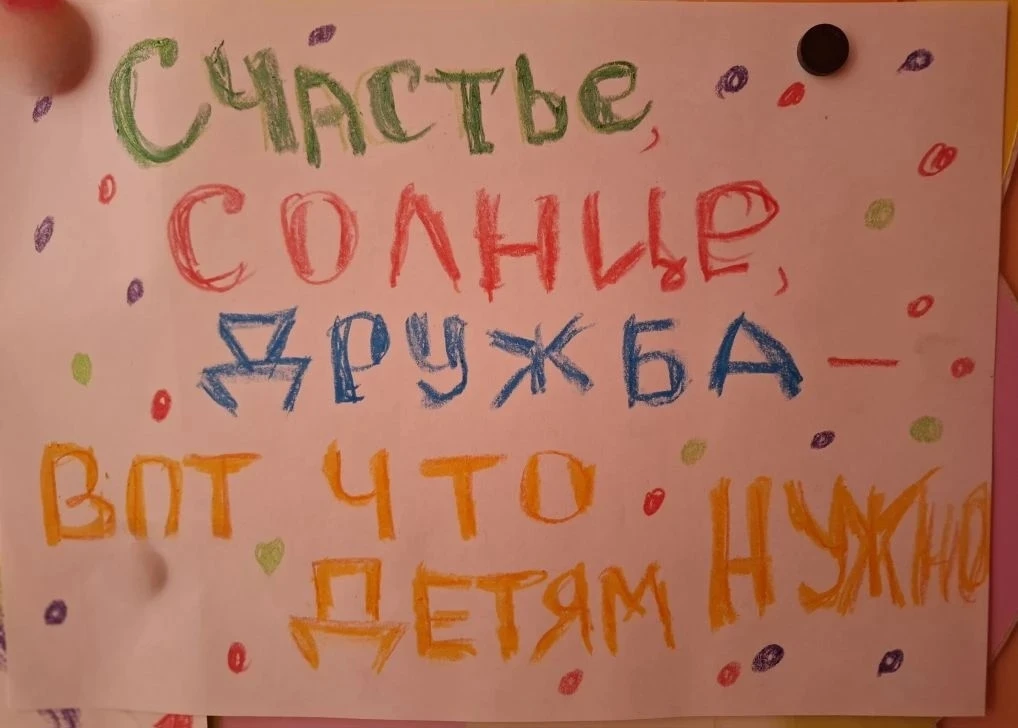 Счастье,
солнце,
дружба —
Вот что
детям нужно